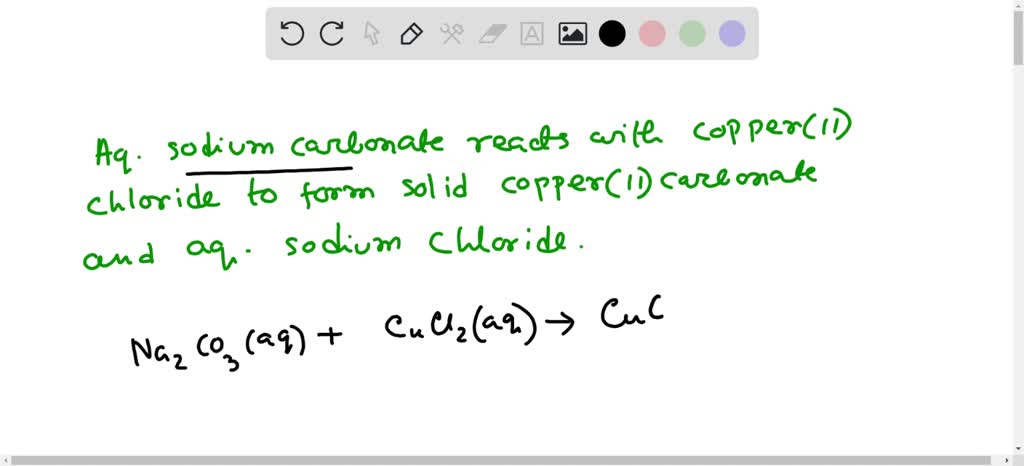 A
Aq. sodium carbonate reacts with copper(11)
chloride to form solid copper(11) carbonate
and aq. sodium chloride.
Na₂CO₃(aq) + CuCl₂(aq) → CuC